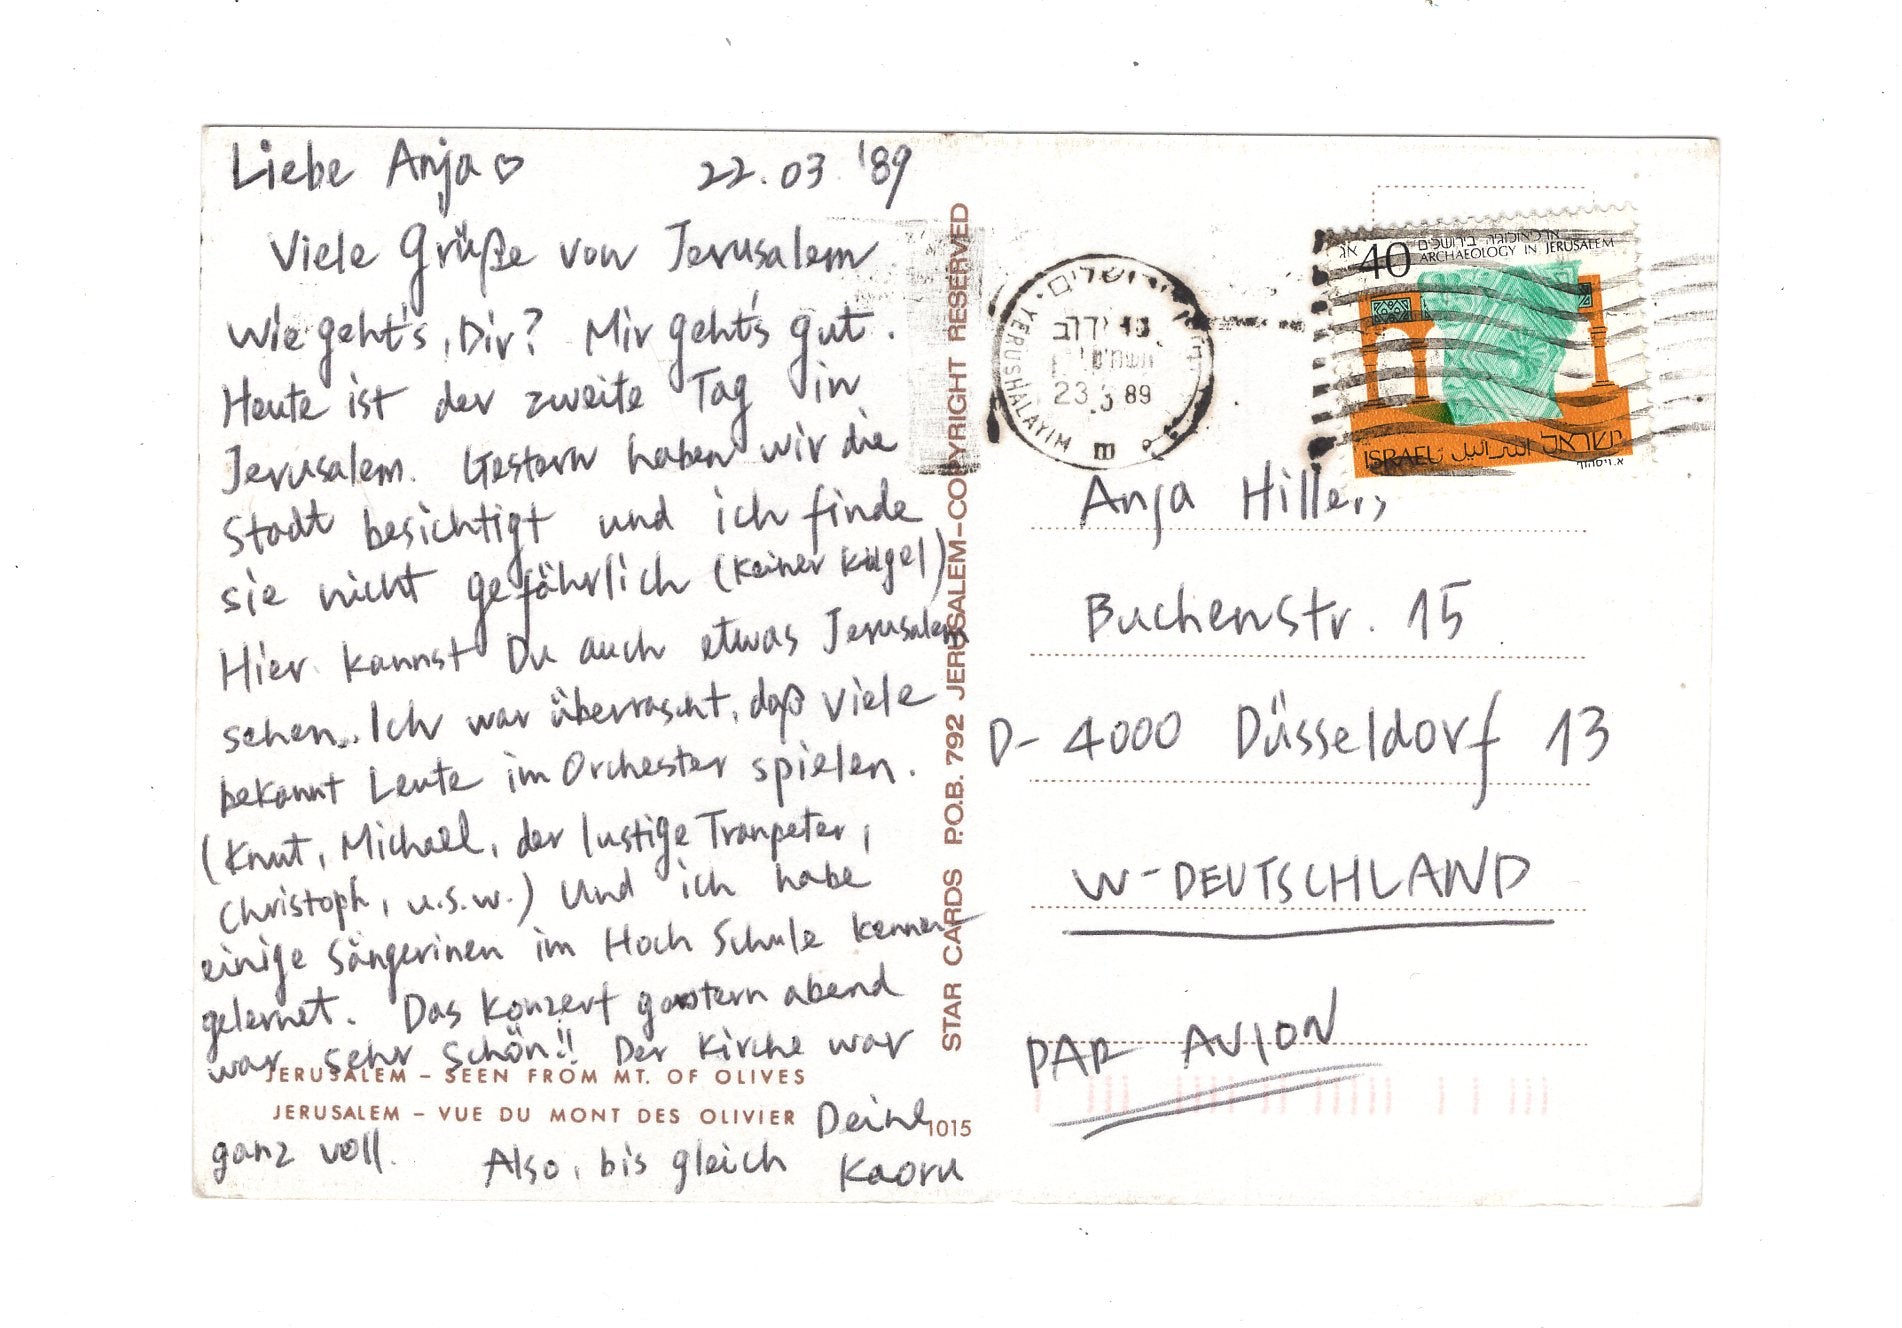 Liebe Anja♡ 22.03.'89
Viele Grüße von Jerusalem
Wie geht's, Dir? Mir geht's gut.
Heute ist der zweite Tag in
Jerusalem. Gestern haben wir die
Stadt besichtigt und ich finde
sie nicht gefährlich (keiner Kugel)
Hier kannst Du auch etwas Jerusalem
sehen.. Ich war überrascht, daß viele
bekannt Leute im Orchester spielen.
(Knut, Michael, der lustige Trompeter,
Christoph, u.s.w.) Und ich habe
einige Sängerinen im Hoch Schule kennen
gelernet. Das Konzert gestern abend
war sehr schön!! Der Kirche war
ganz voll. Also, bis gleich
Deine
Kaoru
JERUSALEM – SEEN FROM MT. OF OLIVES
JERUSALEM – VUE DU MONT DES OLIVIER
1015
STAR CARDS P.O.B. 792 JERUSALEM–COPYRIGHT RESERVED
ירושלים
YERUSHALAYIM
23.3.89
40 אג
ארכאולוגיה בירושלים
ARCHAEOLOGY IN JERUSALEM
ISRAEL اسرائيل ישראל
Anja Hillers
Buchenstr. 15
D- 4000 Düsseldorf 13
W-DEUTSCHLAND
PAR AVION